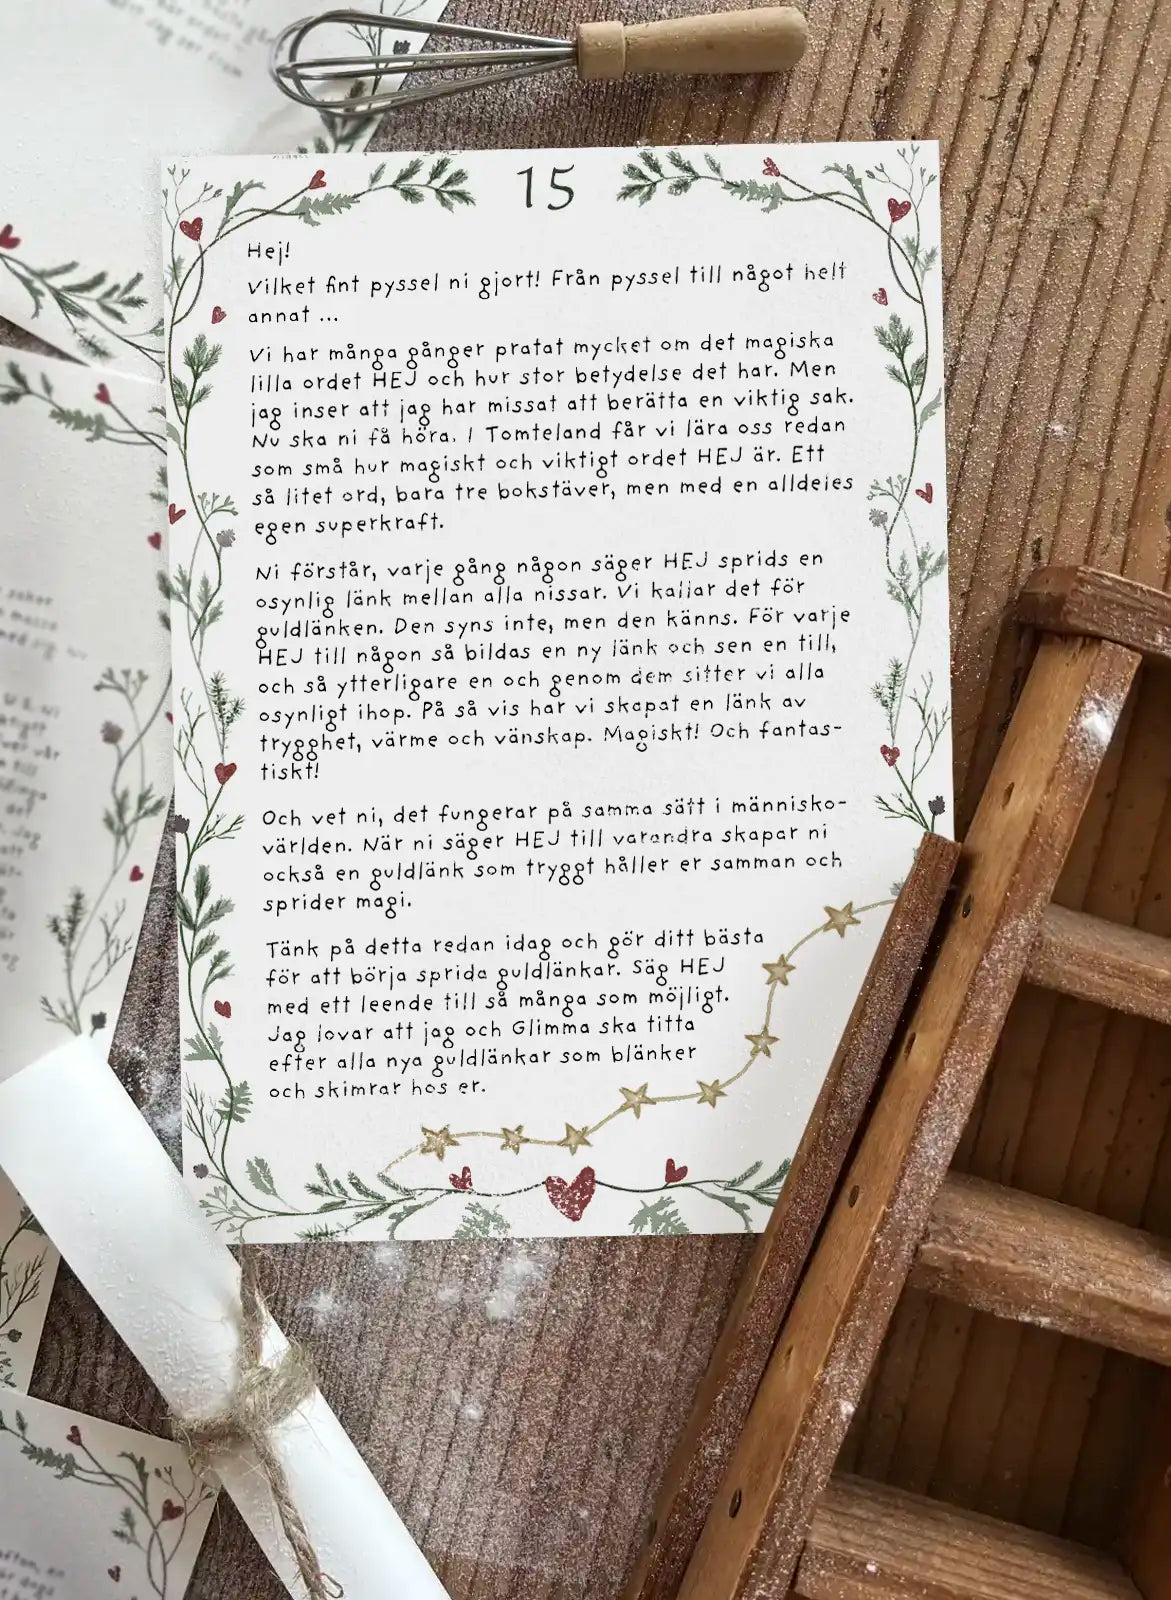 15
Hej!
Vilket fint pyssel ni gjort! Från pyssel till något helt
annat ...
Vi har många gånger pratat mycket om det magiska
lilla ordet HEJ och hur stor betydelse det har. Men
jag inser att jag har missat att berätta en viktig sak.
Nu ska ni få höra. I Tomteland får vi lära oss redan
som små hur magiskt och viktigt ordet HEJ är. Ett
så litet ord, bara tre bokstäver, men med en alldeles
egen superkraft.
Ni förstår, varje gång någon säger HEJ sprids en
osynlig länk mellan alla nissar. Vi kallar det för
guldlänken. Den syns inte, men den känns. För varje
HEJ till någon så bildas en ny länk och sen en till,
och så ytterligare en och genom dem sitter vi alla
osynligt ihop. På så vis har vi skapat en länk av
trygghet, värme och vänskap. Magiskt! Och fantas-
tiskt!
Och vet ni, det fungerar på samma sätt i människo-
världen. När ni säger HEJ till varandra skapar ni
också en guldlänk som tryggt håller er samman och
sprider magi.
Tänk på detta redan idag och gör ditt bästa
för att börja sprida guldlänkar. Säg HEJ
med ett leende till så många som möjligt.
Jag lovar att jag och Glimma ska titta
efter alla nya guldlänkar som blänker
och skimrar hos er.